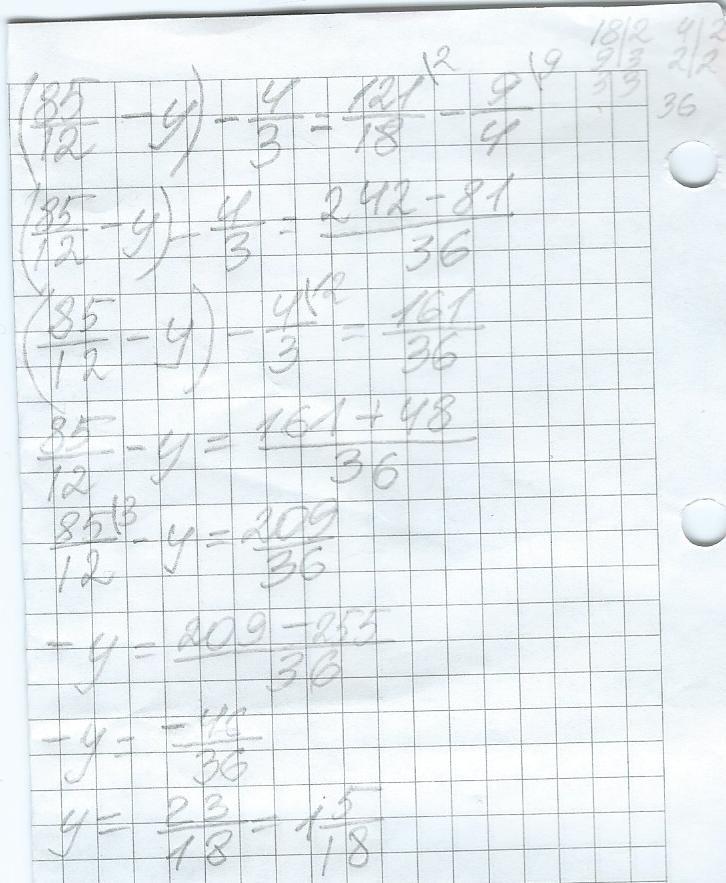 (85/12 - y) - 4/3 = 121\2/18 - 9\9/4
18|2 4|2
9|3 2|2
3|3
36
(85/12 - y) - 4/3 = 242 - 81/36
(85/12 - y) - 4\12/3 = 161/36
85/12 - y = 161 + 48/36
85\3/12 - y = 209/36
-y = 209 - 255/36
-y = -46/36
y = 23/18 = 1 5/18